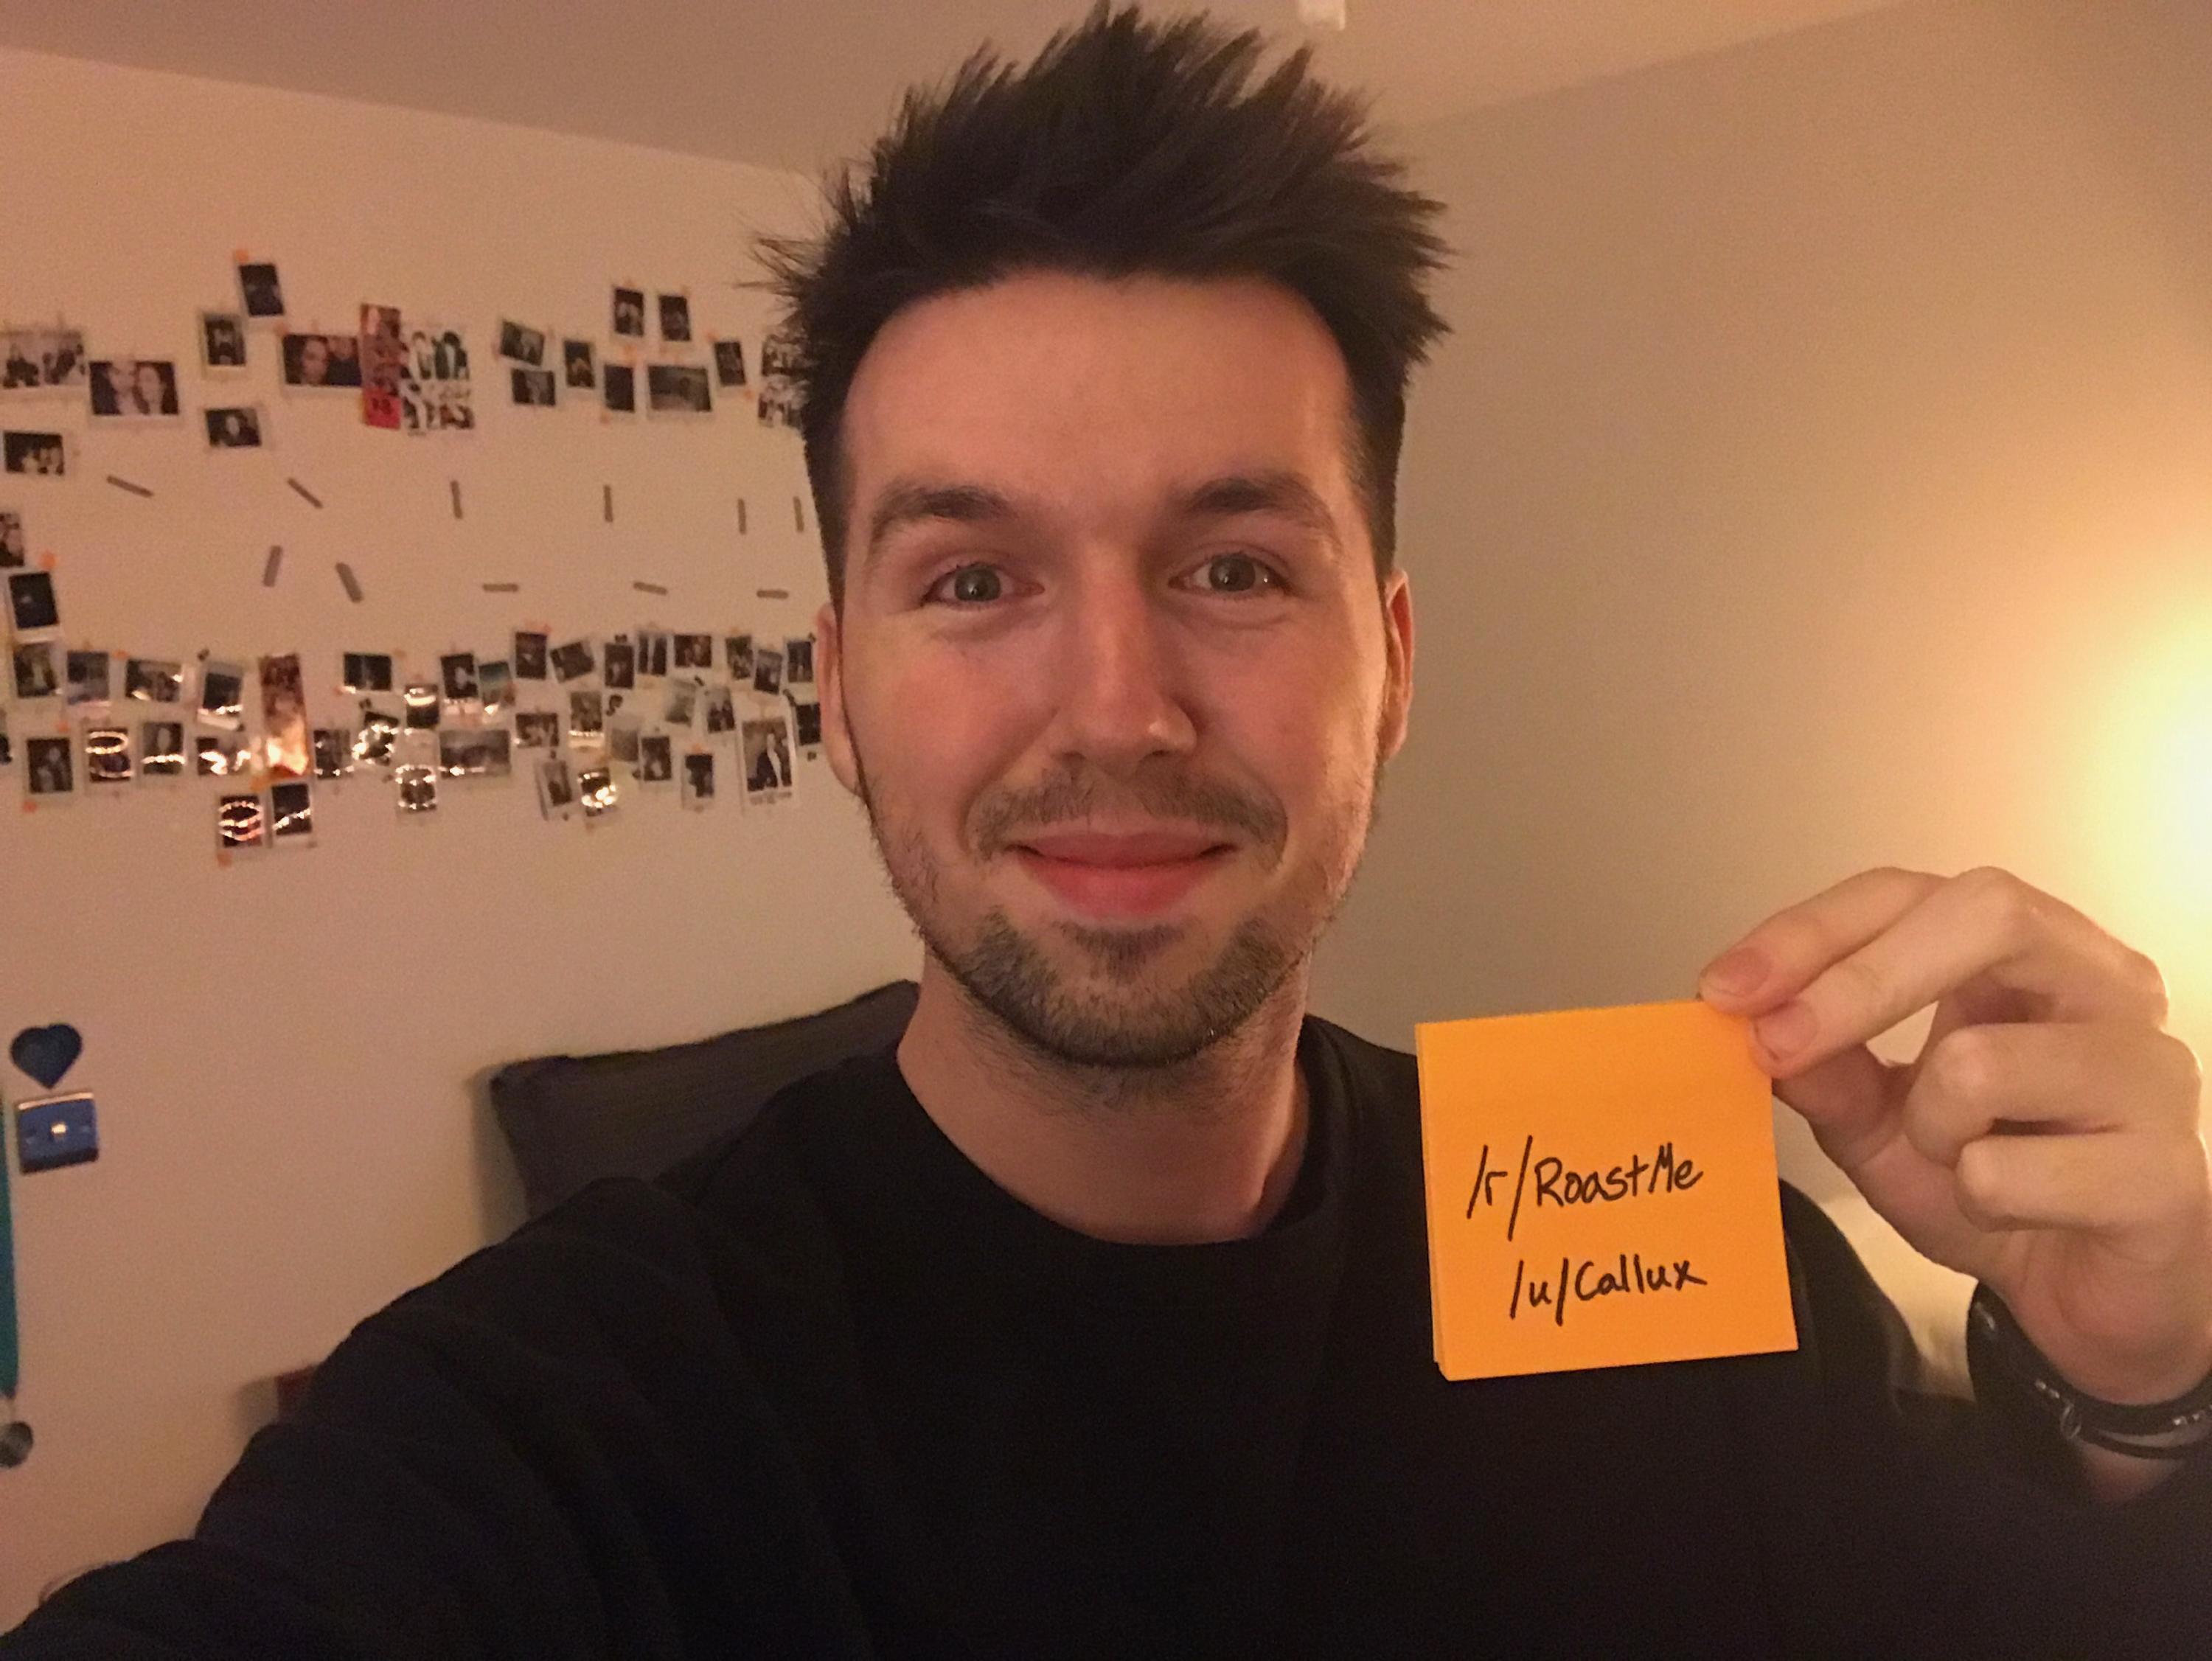 /r/RoastMe
/u/Callux